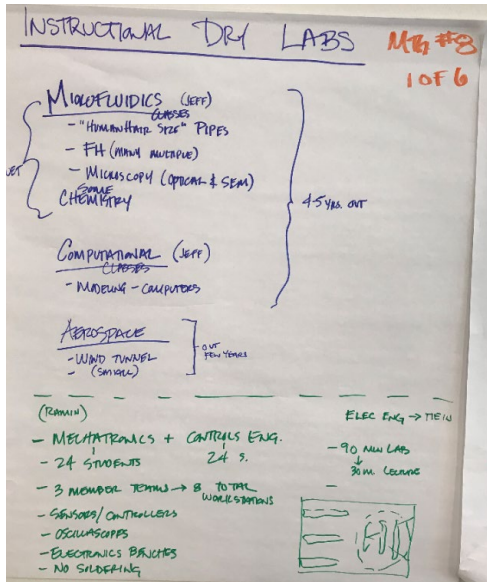 INSTRUCTIONAL DRY LABS
MTG #8
1 OF 6
MICROFLUIDICS (JEFF)
CLASSES
- "HUMAN HAIR SIZE" PIPES
- FH (MANY MULTIPLE)
- MICROSCOPY (OPTICAL & SEM)
SOME
CHEMISTRY
WET
4-5 YRS. OUT
COMPUTATIONAL (JEFF)
CLASSES
- MODELING - COMPUTERS
AEROSPACE
- WIND TUNNEL
- (SMALL)
OUT
FEW YEARS
(RAMIN)
- MECHATRONICS + CONTROLS ENG.
- 24 STUDENTS 24 S.
- 3 MEMBER TEAMS → 8 TOTAL
WORKSTATIONS
- SENSORS/CONTROLLERS
- OSCILLASCOPES
- ELECTRONICS BENCHES
- NO SOLDERING
ELEC ENG →
- 90 MIN LAB
30 M. LECTURE
-